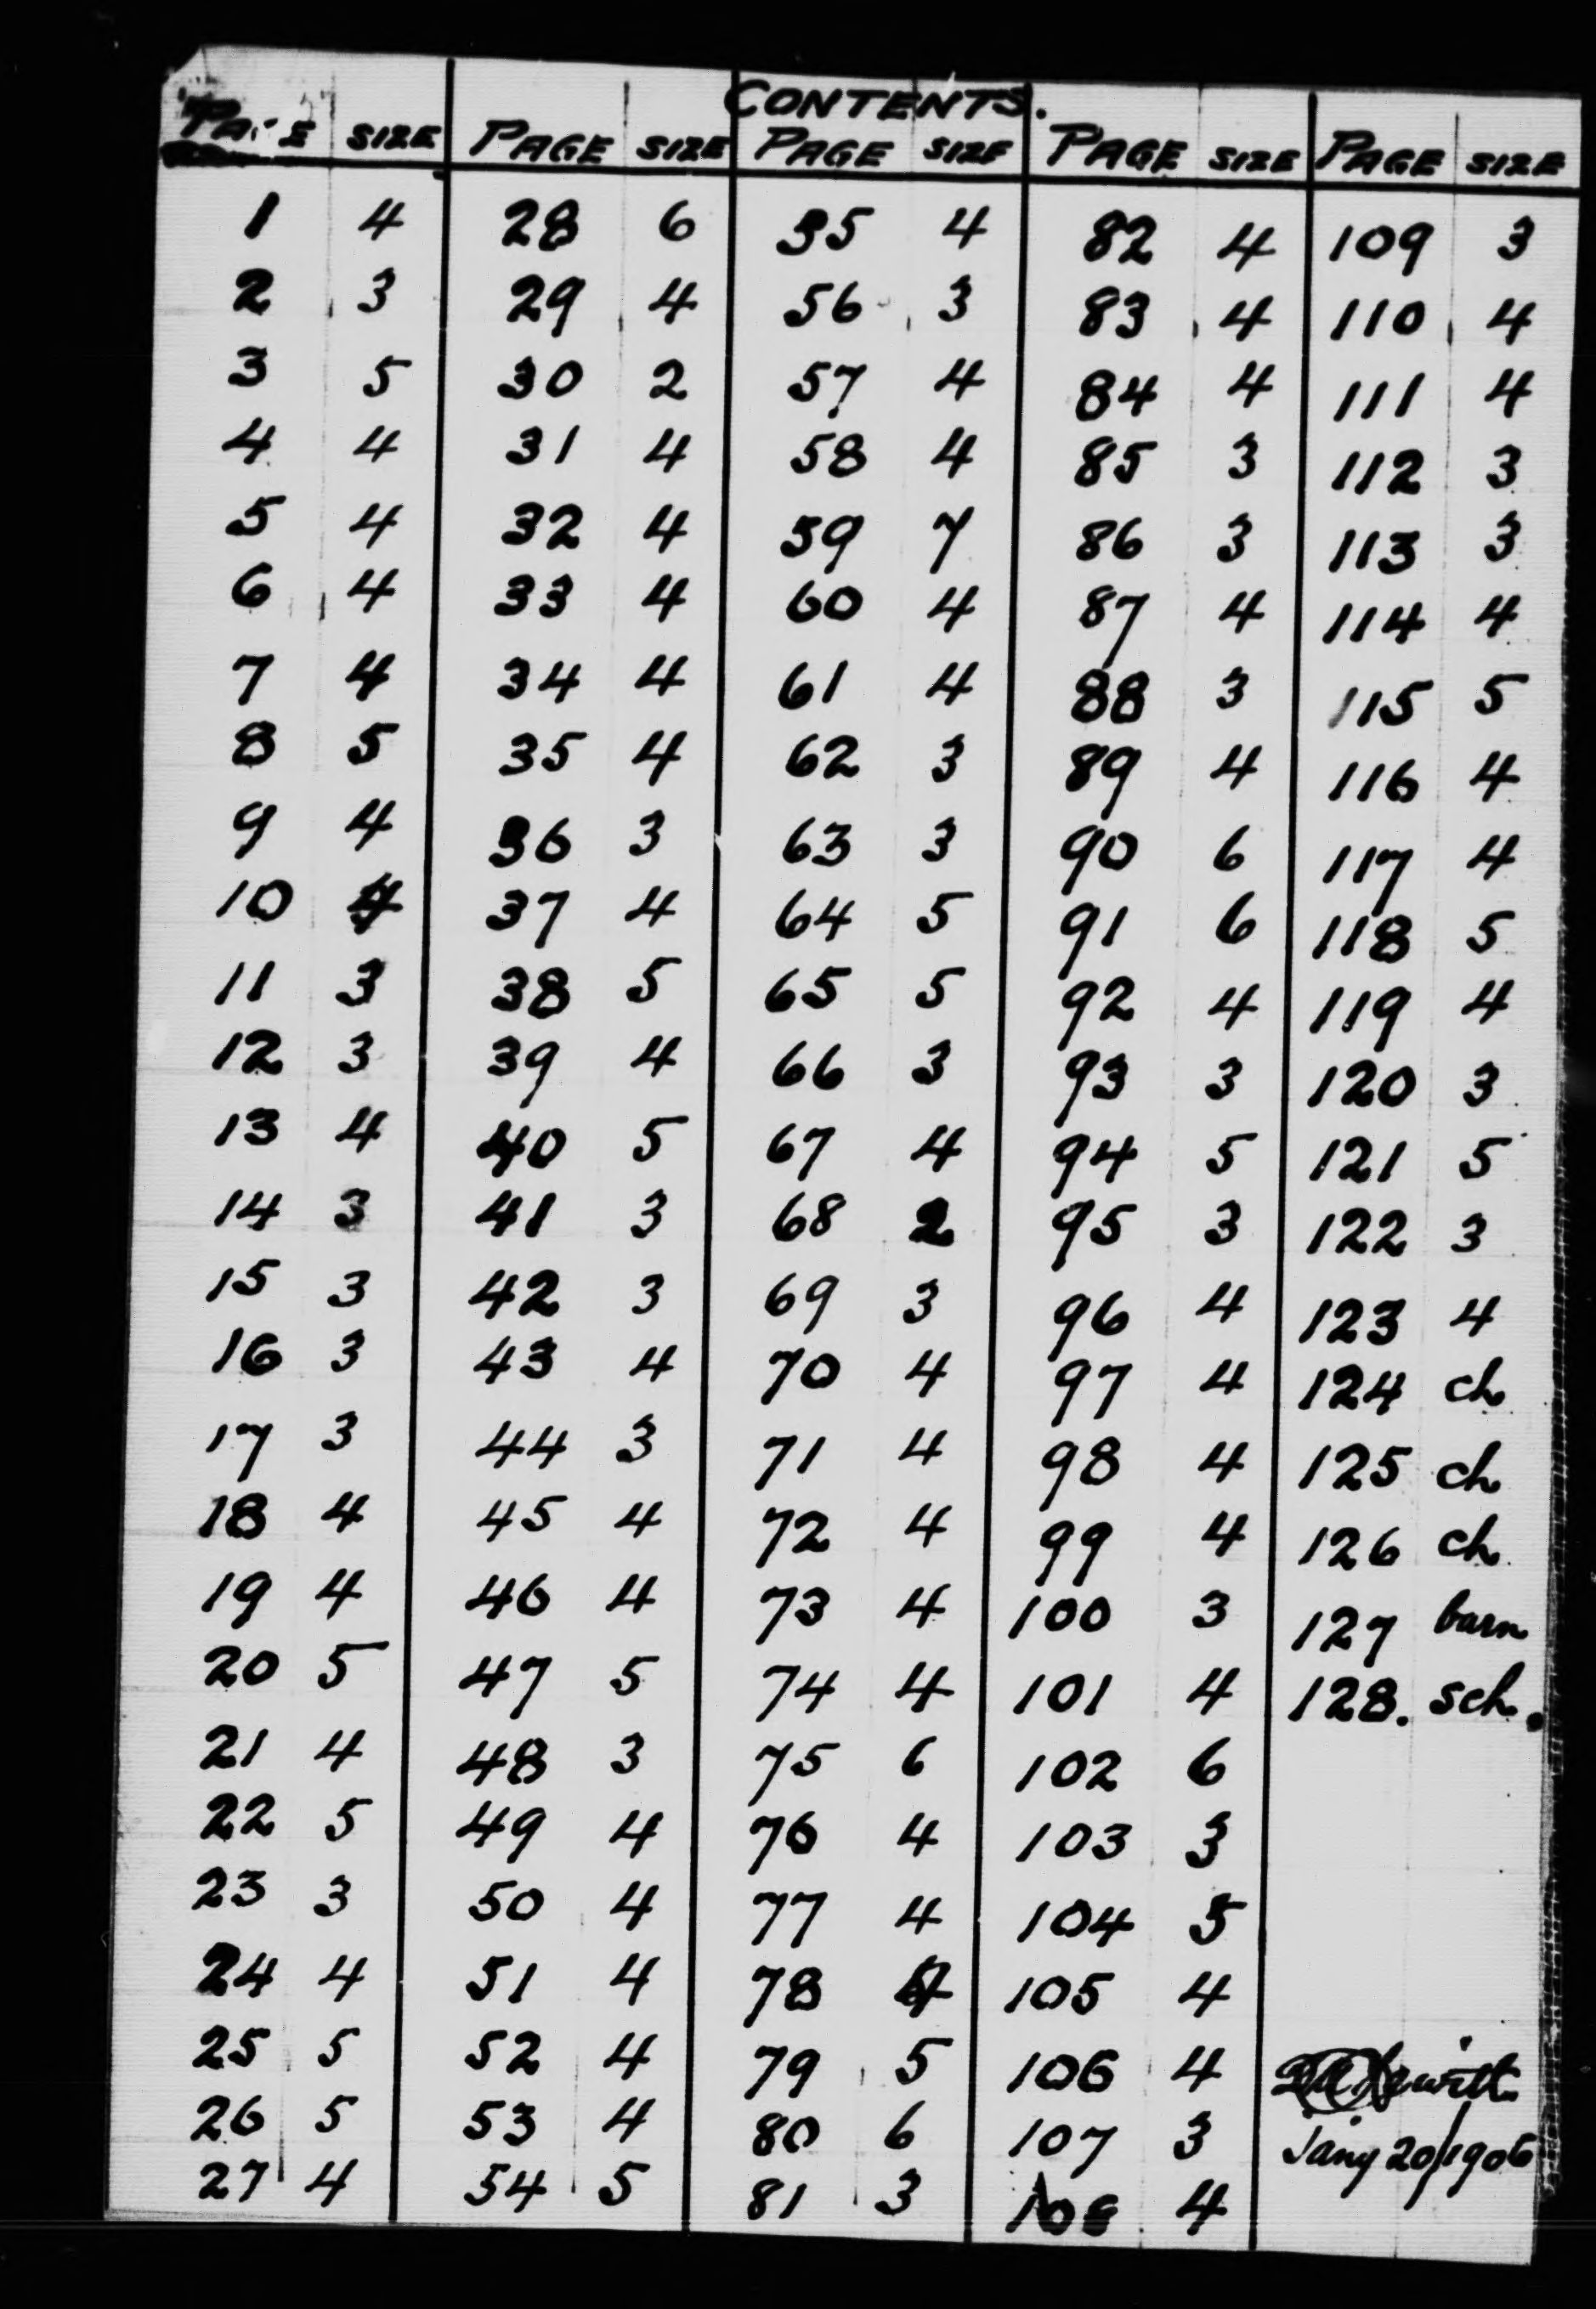 CONTENTS.
PAGE SIZE PAGE SIZE PAGE SIZE PAGE SIZE PAGE SIZE
1 4 28 6 55 4 82 4 109 3
2 3 29 4 56 3 83 4 110 4
3 5 30 2 57 4 84 4 111 4
4 4 31 4 58 4 85 3 112 3
5 4 32 4 59 7 86 3 113 3
6 4 33 4 60 4 87 4 114 4
7 4 34 4 61 4 88 3 115 5
8 5 35 4 62 3 89 4 116 4
9 4 36 3 63 3 90 6 117 4
10 4 37 4 64 5 91 6 118 5
11 3 38 5 65 5 92 4 119 4
12 3 39 4 66 3 93 3 120 3
13 4 40 5 67 4 94 5 121 5
14 3 41 3 68 2 95 3 122 3
15 3 42 3 69 3 96 4 123 4
16 3 43 4 70 4 97 4 124 ch
17 3 44 3 71 4 98 4 125 ch
18 4 45 4 72 4 99 4 126 ch
19 4 46 4 73 4 100 3 127 barn
20 5 47 5 74 4 101 4 128. sch.
21 4 48 3 75 6 102 6
22 5 49 4 76 4 103 3
23 3 50 4 77 4 104 5
24 4 51 4 78 105 4
25 5 52 4 79 5 106 4
26 5 53 4 80 6 107 3 Jany 20/1906
27 4 54 5 81 3 108 4